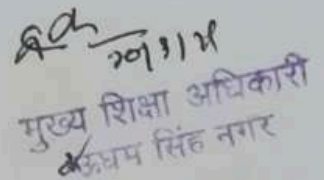 मुख्य शिक्षा अधिकारी
ऊधम सिंह नगर